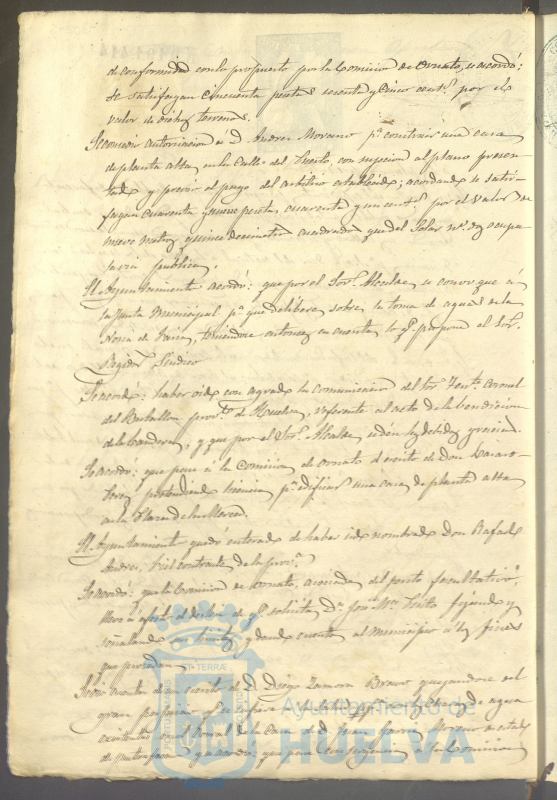 de conformidad con lo propuesto por la Comision de Ornato, se acordó:
se satisfagan cincuenta pesetas sesenta y cinco cent.s por el
valor de dichos terrenos.
Se concedió autorizacion a D. Andres Moreno p.a construir una casa
de planta alta, en la Calle del Puerto, con sujecion al plano presen-
tado y previo el pago del arbitrio establecido; acordando se satis-
fagan cuarenta y nueve pesetas, cuarenta y un cent.s por el valor de
nueve metros y quince decimetros cuadrados que del Solar n.º dos ocupa
la via pública.
El Ayuntamiento acordó: que por el Sor. Alcalde, se convoque á
la Junta Municipal p.a que delibere sobre la toma de aguas de la
Noria de teniendose entonces en cuenta, lo q.e propone el Sor.
Regidor Sindico
Se acordó: haber oido con agrado la comunicacion del Sor. Ten.te Coronel
del Batallon prov.l de Huelva, referente al acto de la bendicion
de la bandera, y que por el Sor. Alcalde, se den las debidas gracias.
Se acordó: que pase á la Comision de ornato el escrito de Don Lazaro
Perez pretendiendo licencia p.a edificar una casa de planta alta
en la Plaza de la Merced.
El Ayuntamiento quedó enterado de haber sido nombrado Don Rafael
Andres, fiel contraste de la prov.a
Se acordó: que la Comision de Ornato, asociada del perito facultativo,
lleve a efecto el deslinde q.e solicita D.n José M.a fijando y
señalando limites y dando cuenta al municipio a los fines
que procedan.
Se dio cuenta de un escrito de D. Diego Zamora Bravo quejandose del
gran perjuicio q.e se infiere de agua
existentes en el Corral de la Casa de D. Juan Garcia Moreno
y acordó que pase con urgencia á la Comision
Ayuntamiento de
HUELVA